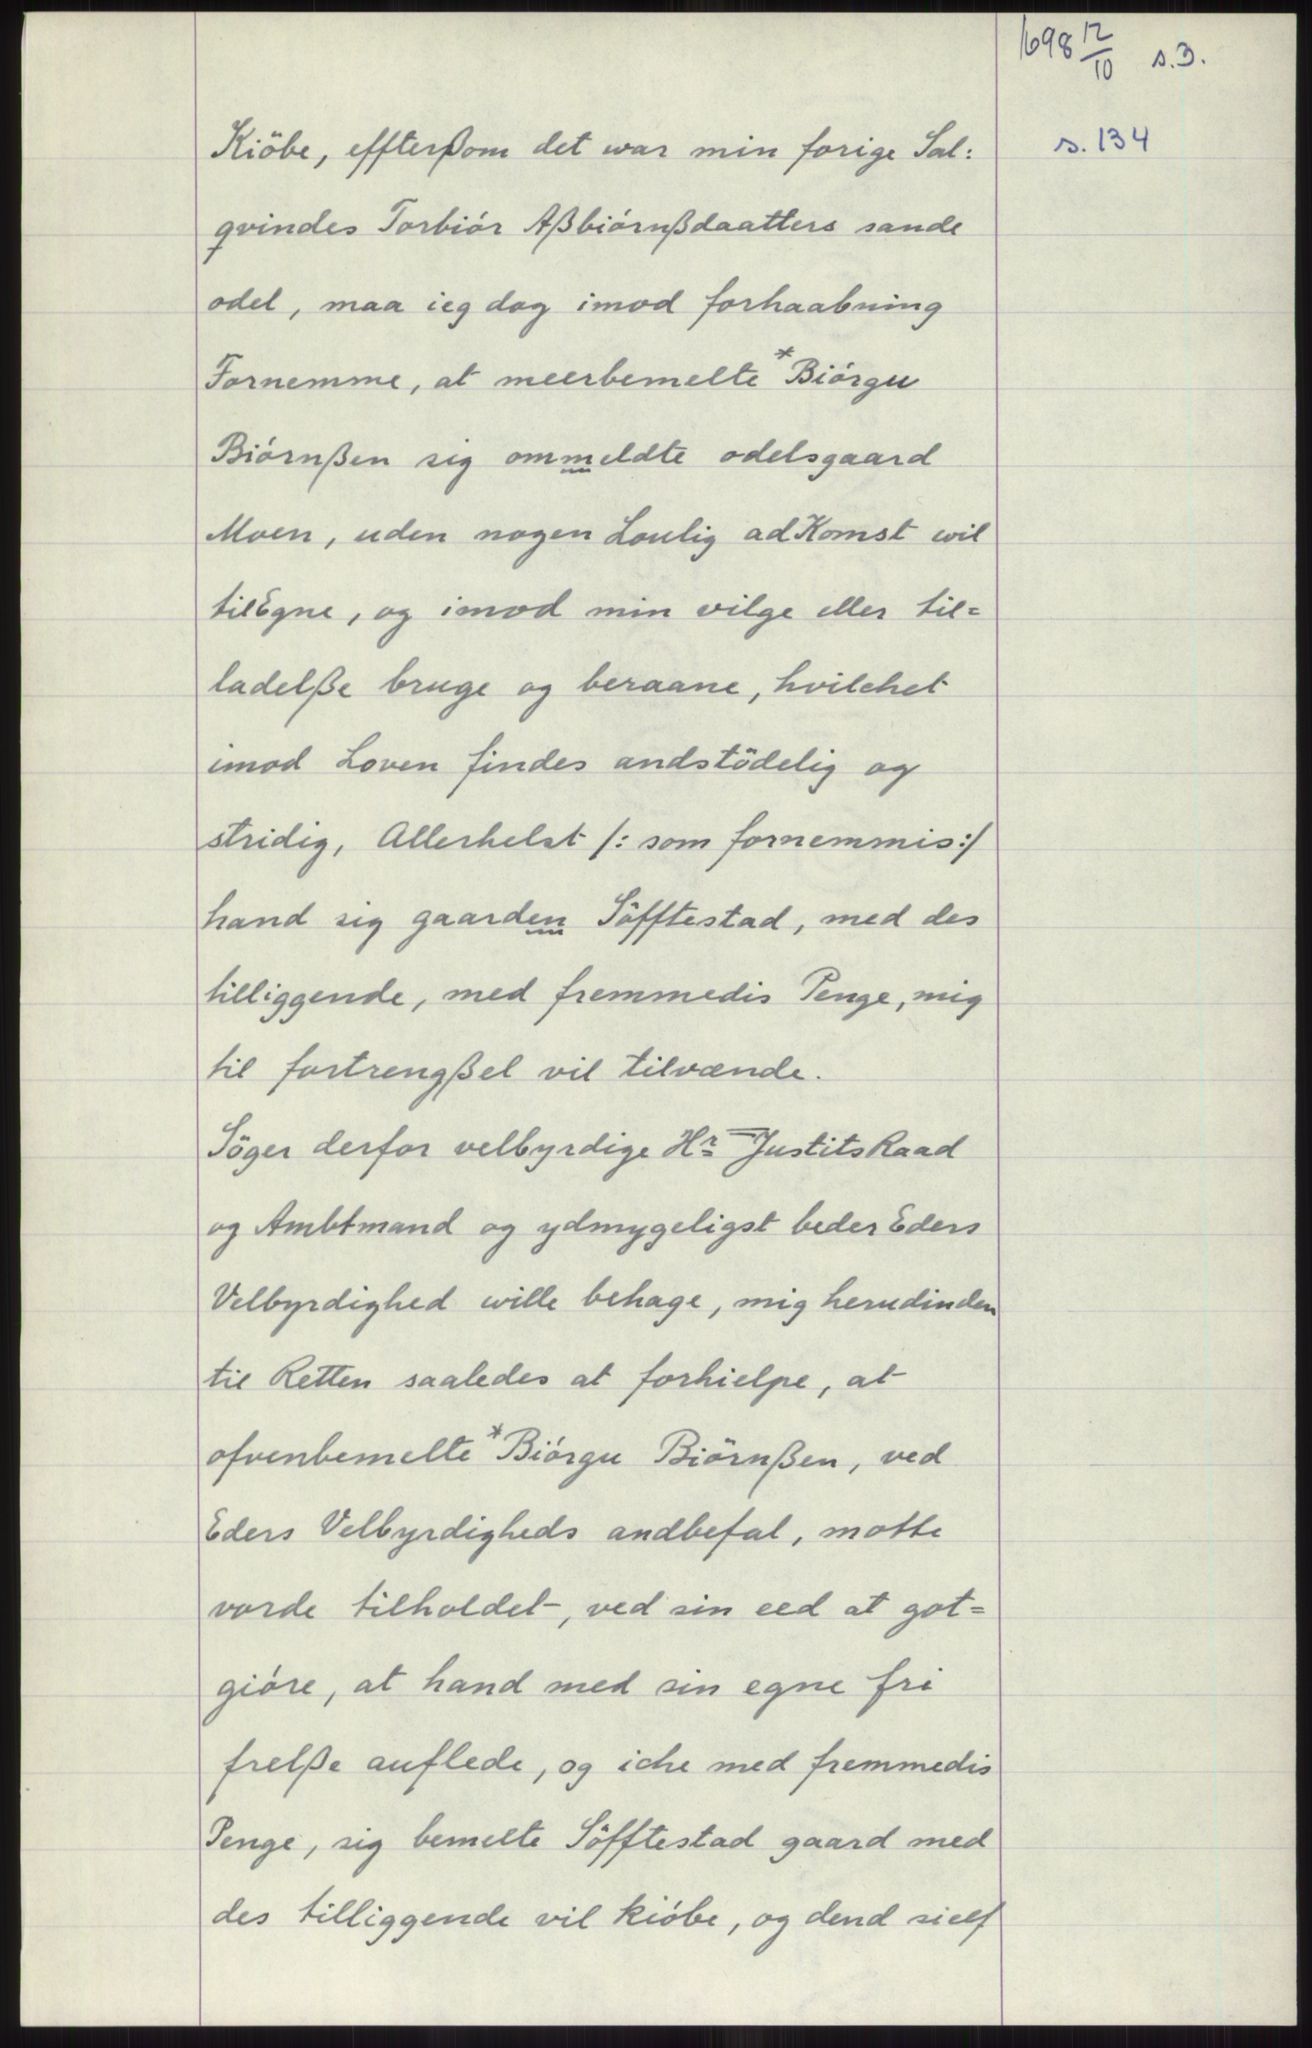 1698 12/10 s.3.
s. 134
Kiöbe, effterßom det war min forige Sal:
qvindes Torbiór Aßbiórnßdaatters sande
odel, maa ieg dog imod forhaabning
Fornemme, at meerbemelte *Biórgu
Biórnßen sig ommeldte odelsgaard
Moen, uden nogen Loulig adKomst wil
tilEgne, og imod min vilge eller til=
ladelße bruge og beraane, hvilchet
imod Loven findes andstödelig og
stridig, Allerhelst /: som fornemmis:/
hand sig gaarden Söfftestad, med des
tilliggende, med fremmedis Penge, mig
til fortrengßel vil tilvænde.
Söger derfor velbyrdige Hr= JustitsRaad
og Ambtmand og ydmygeligst beder Eders
Velbyrdighed wille behage, mig herudinden
til Retten saaledes at forhielpe, at
ofvenbemelte *Biórgu Biörnßen, ved
Eders Velbyrdigheds andbefal, motte
vorde tilholdet, ved sin eed at got=
gióre, at hand med sin egne fri
frelße auflede, og iche med fremmedis
Penge, sig bemelte Söfftestad gaard med
des tilliggende vil kióbe, og dend sielf